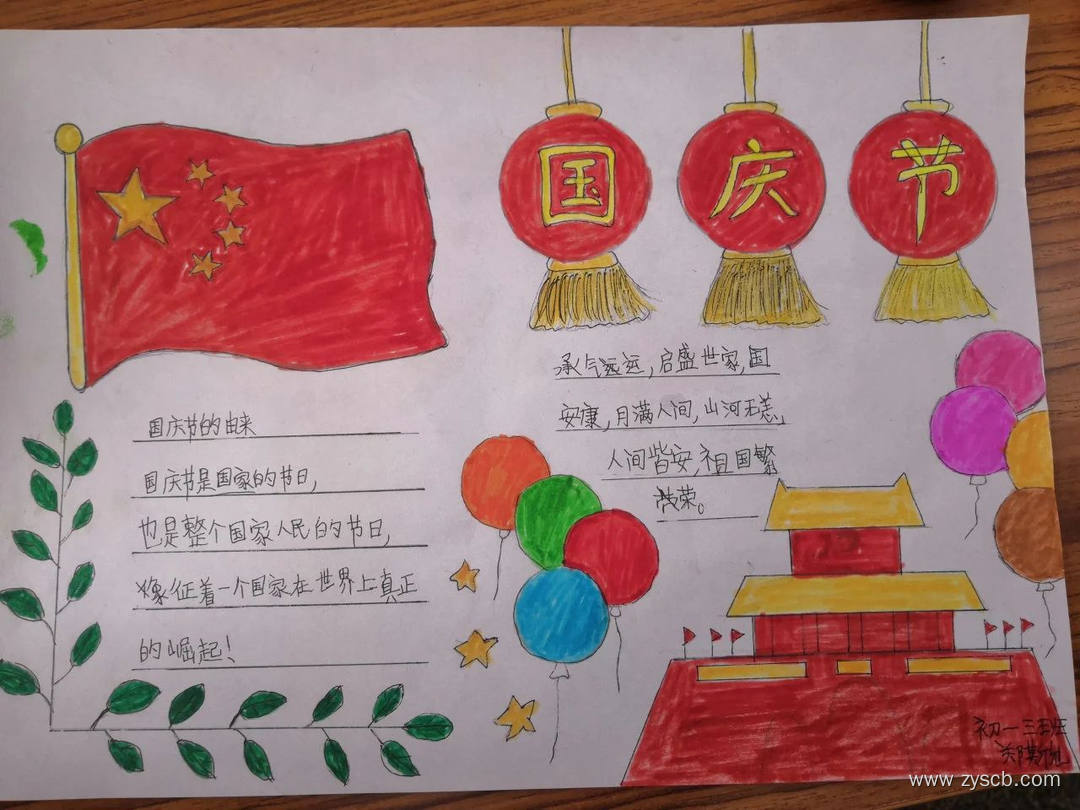 国庆节
国庆节的由来
国庆节是国家的节日,
也是整个国家人民的节日,
象征着一个国家在世界上真正
的崛起!
承气远运,启盛世家,国
安康,月满人间,山河无恙,
人间皆安,祖国繁
荣。
初一三班
www.zyscb.com